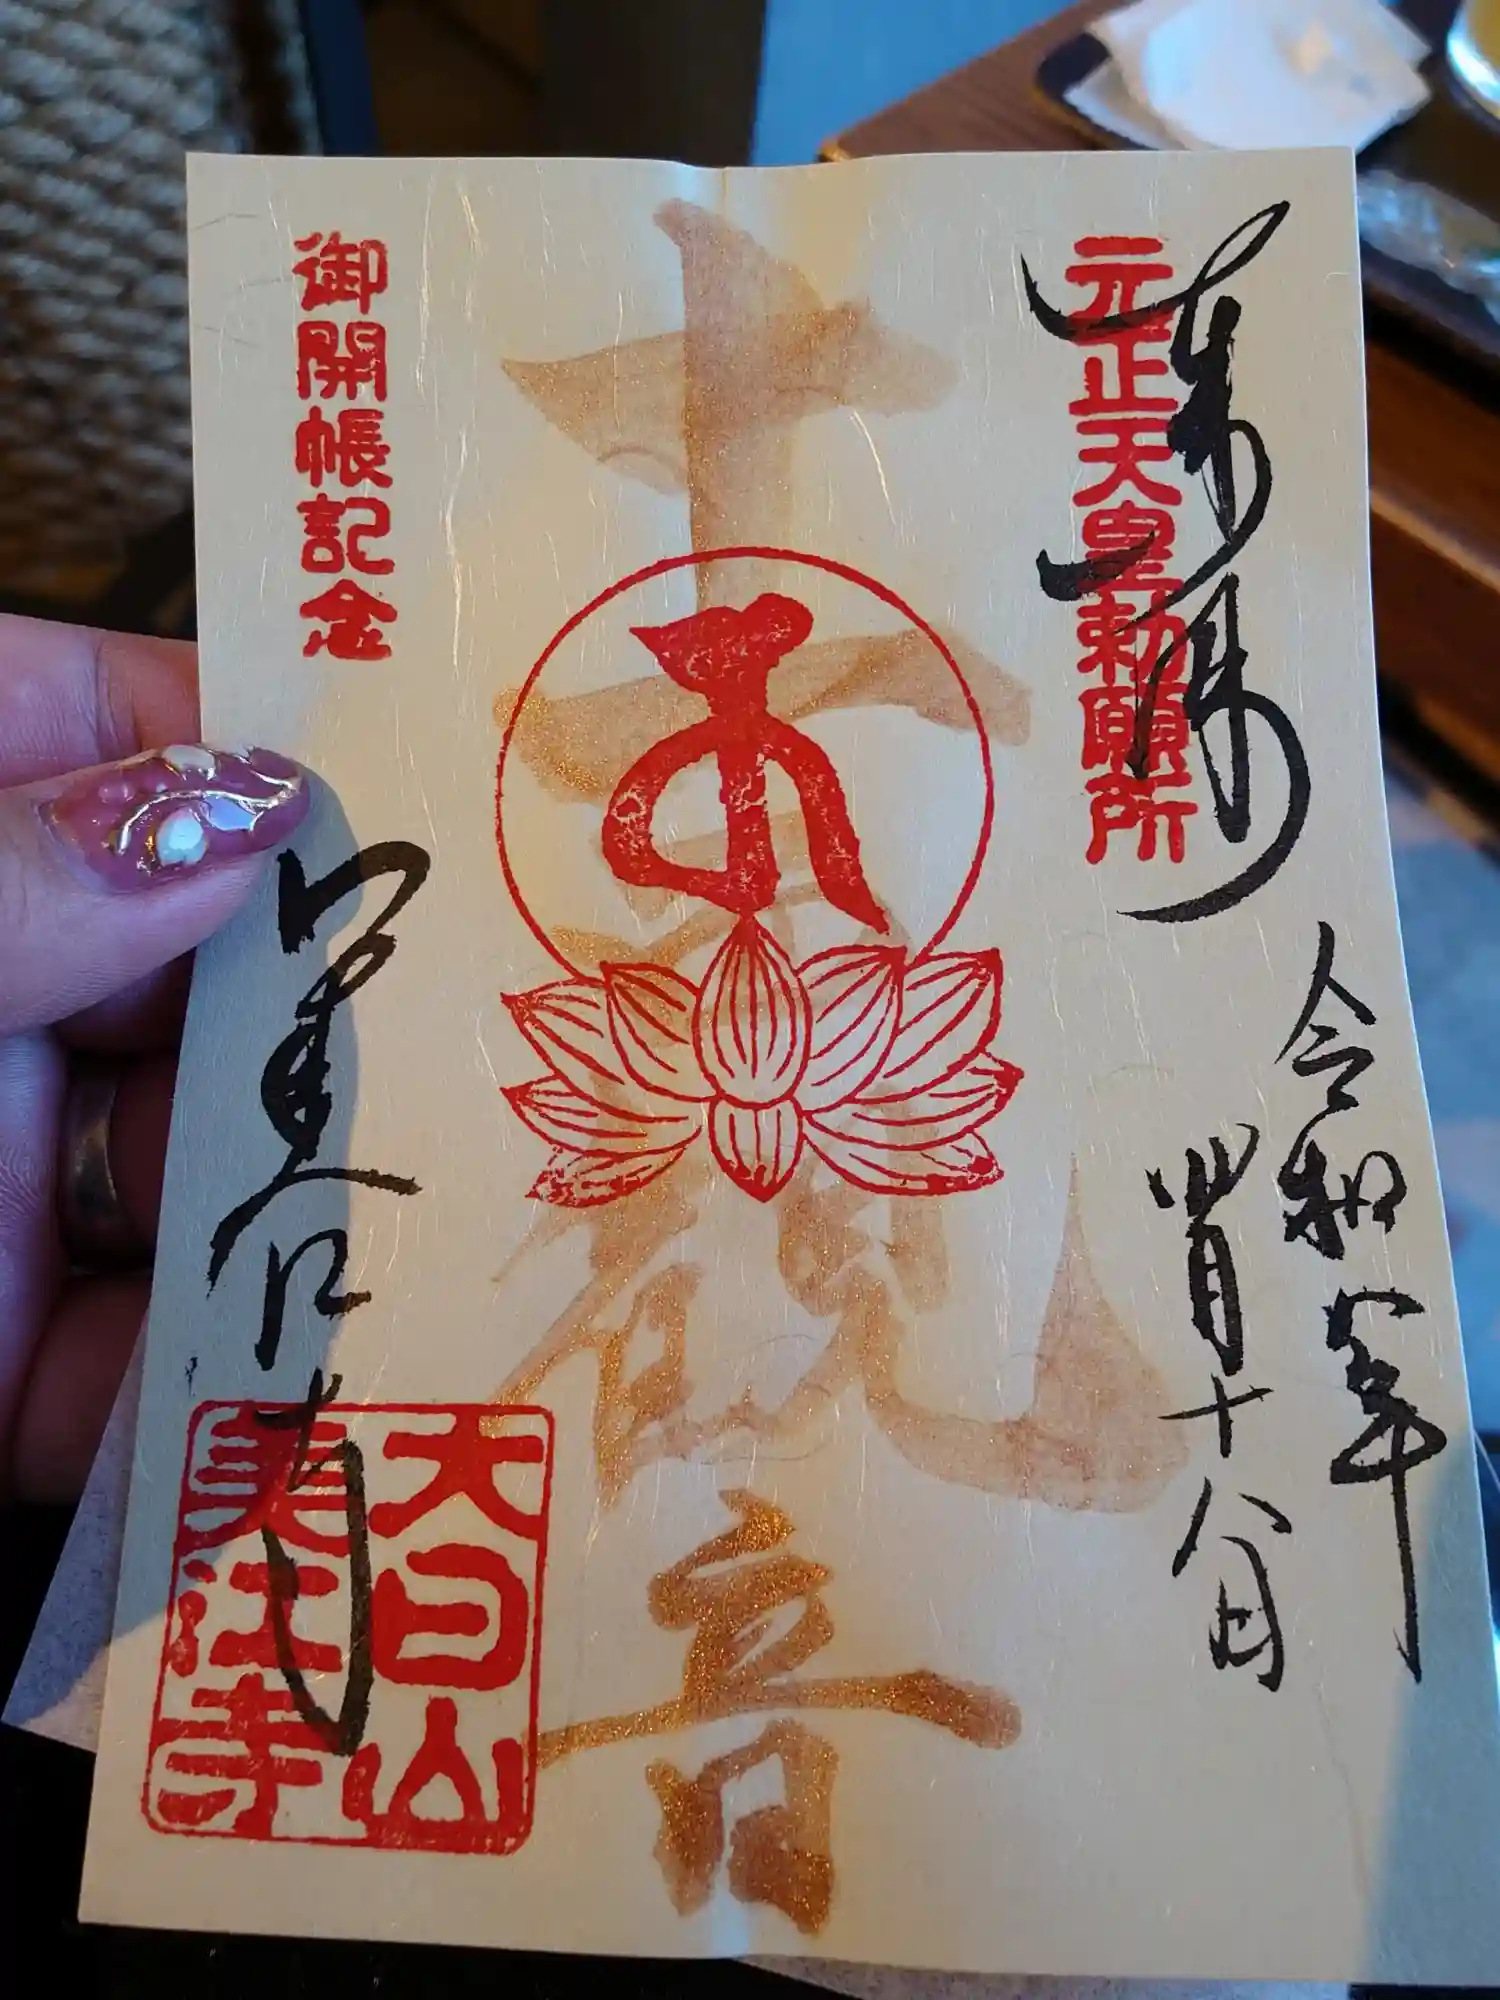 元正天皇勅願所
奉拝
令和六年
四月十八日
十一面観音
御開帳記念
美江寺
大日山
美江寺